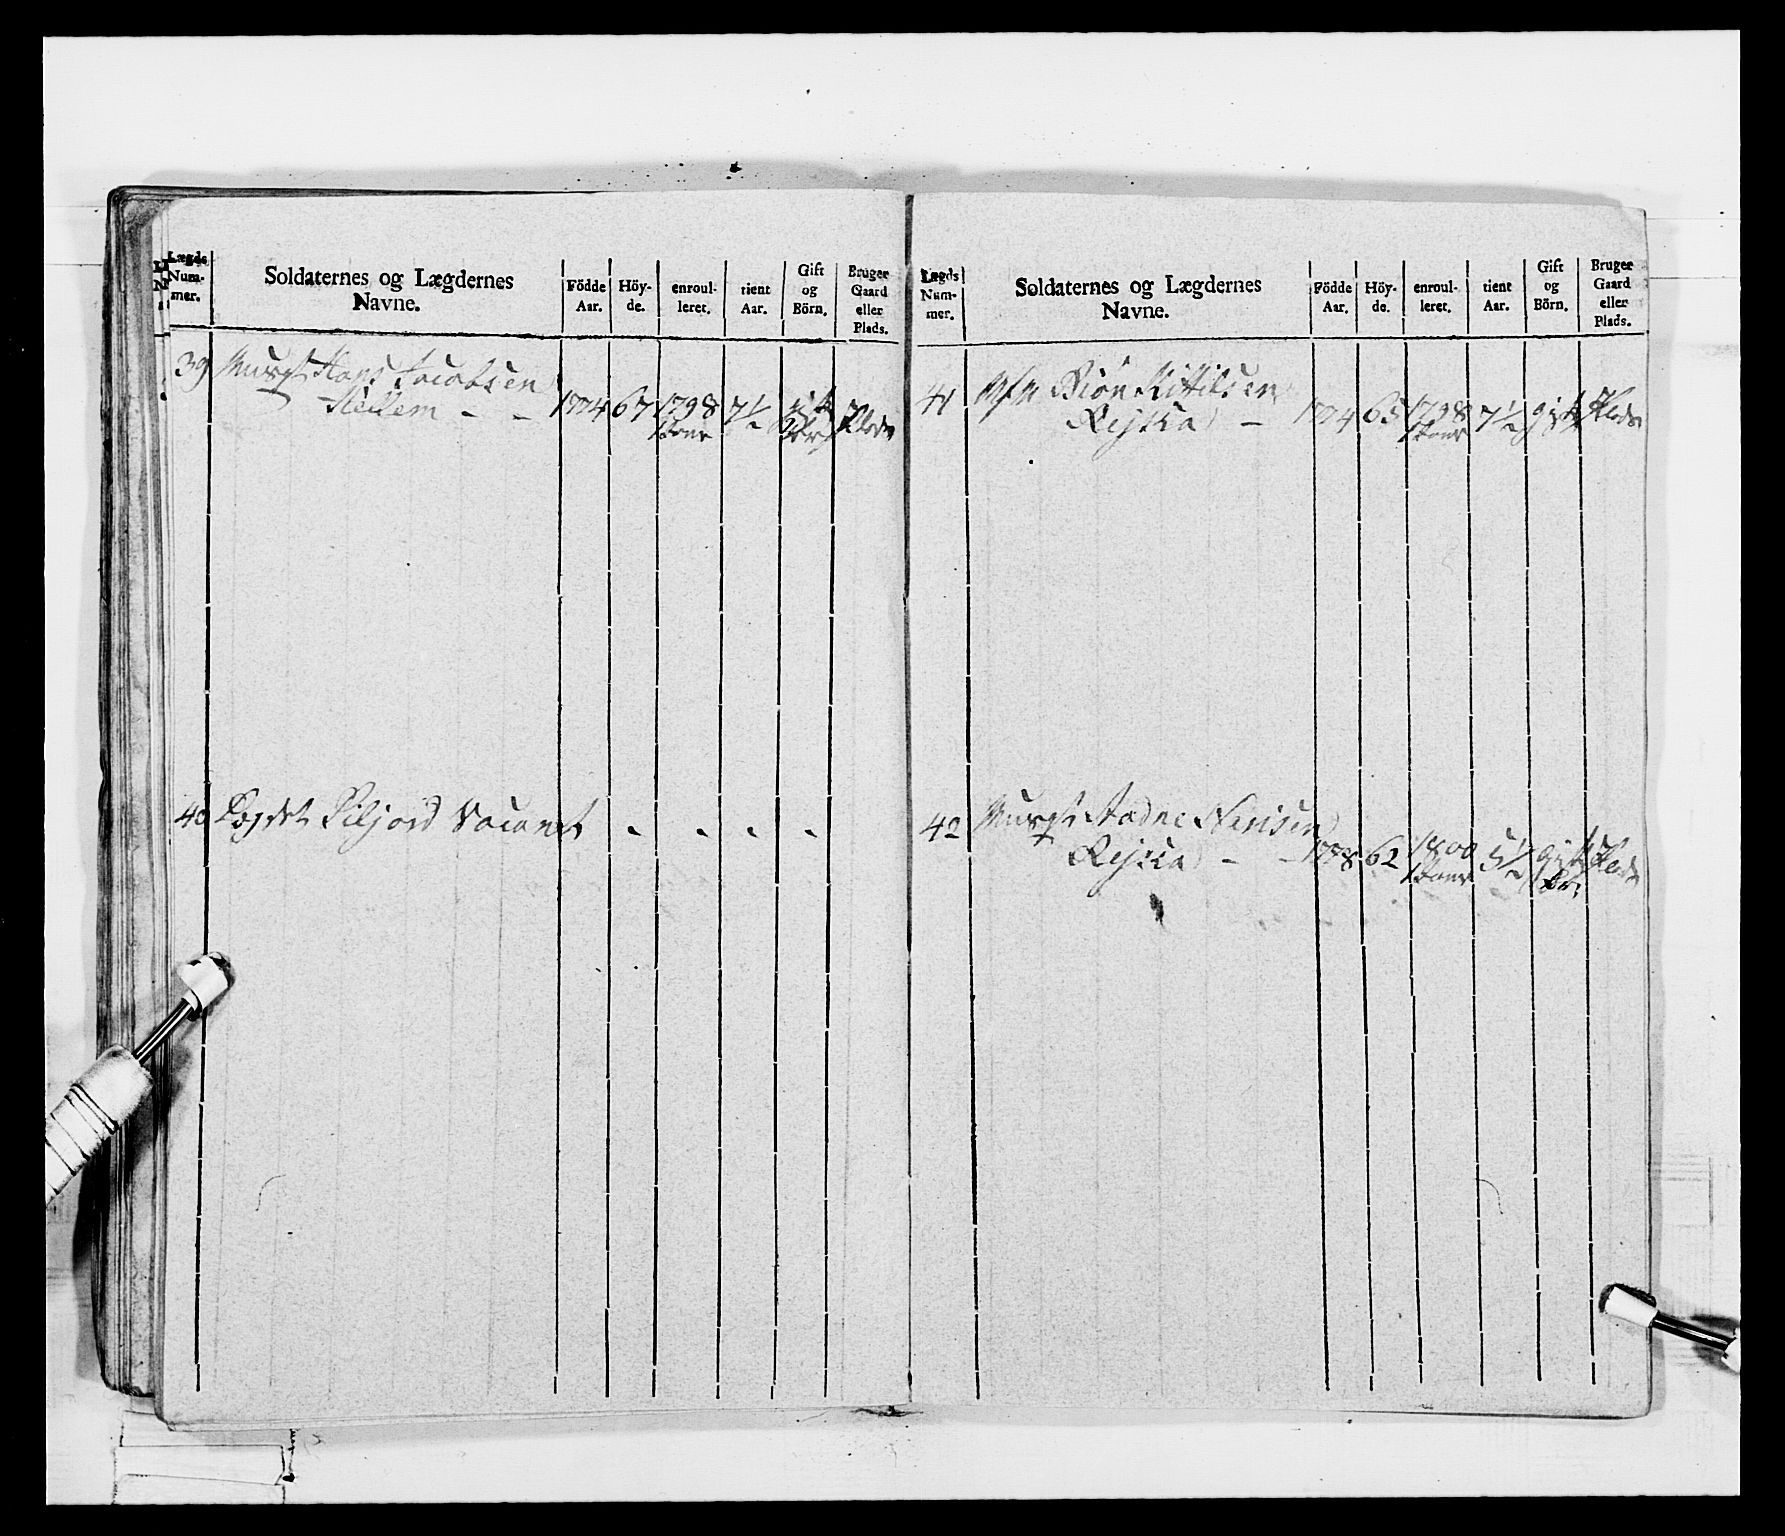 Lægds Num- mer.
Soldaternes og Lægdernes Navne.
Födde Aar.
Höy- de.
enroul- leret.
tient Aar.
Gift og Börn.
Bruger Gaard eller Plads.
39 Musqt Hans Jacobsen
Hellem - - 1774 67 1798 7½ gift Plads
40 Lægdet Kiljord Vacant - - - -
Lægds Num- mer.
Soldaternes og Lægdernes Navne.
Födde Aar.
Höy- de.
enroul- leret.
tient Aar.
Gift og Börn.
Bruger Gaard eller Plads.
41 Biön Kittilsen
Rejsaa - 1774 65 1798 7½ gift Plads
42 Musqt Aadne
Rejsaa - - 1778 62 1800 5½ gift Plads